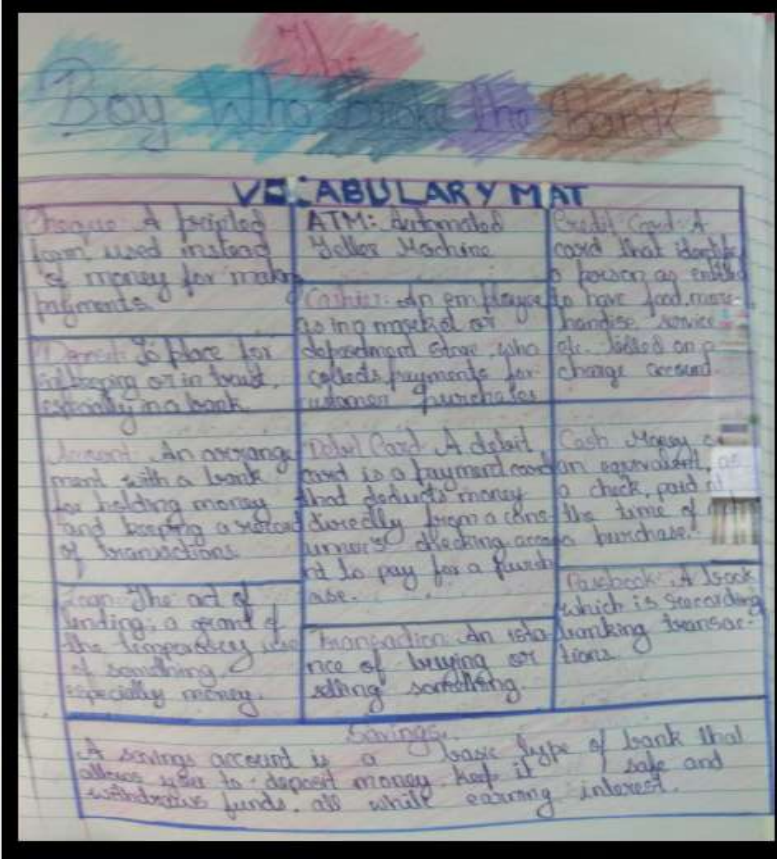 The
Boy Who broke the Bank
VOCABULARY MAT
Cheque: A printed
form used instead
of money for making
payments.
Deposit: To place for
safekeeping or in trust,
especially in a bank.
Account: An arrange
ment with a bank
for holding money
and keeping a record
of transactions.
Loan: The act of
lending; a grant of
the temporary use
of something,
especially money.
ATM: Automated
Teller Machine
Cashier: An employee
as in a market or
department store, who
collects payments for
customer purchases
Debit Card: A debit
card is a payment card
that deducts money
directly from a cons
umer's checking accou
nt to pay for a purch
ase.
Transaction: An insta
nce of buying or
selling something.
Credit Card: A
card that identifies
a person as entitled
to have food, mer
handise, service
etc. billed on a
charge account.
Cash: Money
an equivalent, as
a check, paid at
the time of
a purchase.
Passbook: A book
which is recording
banking transac-
tions.
Savings:
A savings account is a basic type of bank that
allows you to deposit money, keep it safe and
withdraws funds, all while earning interest.